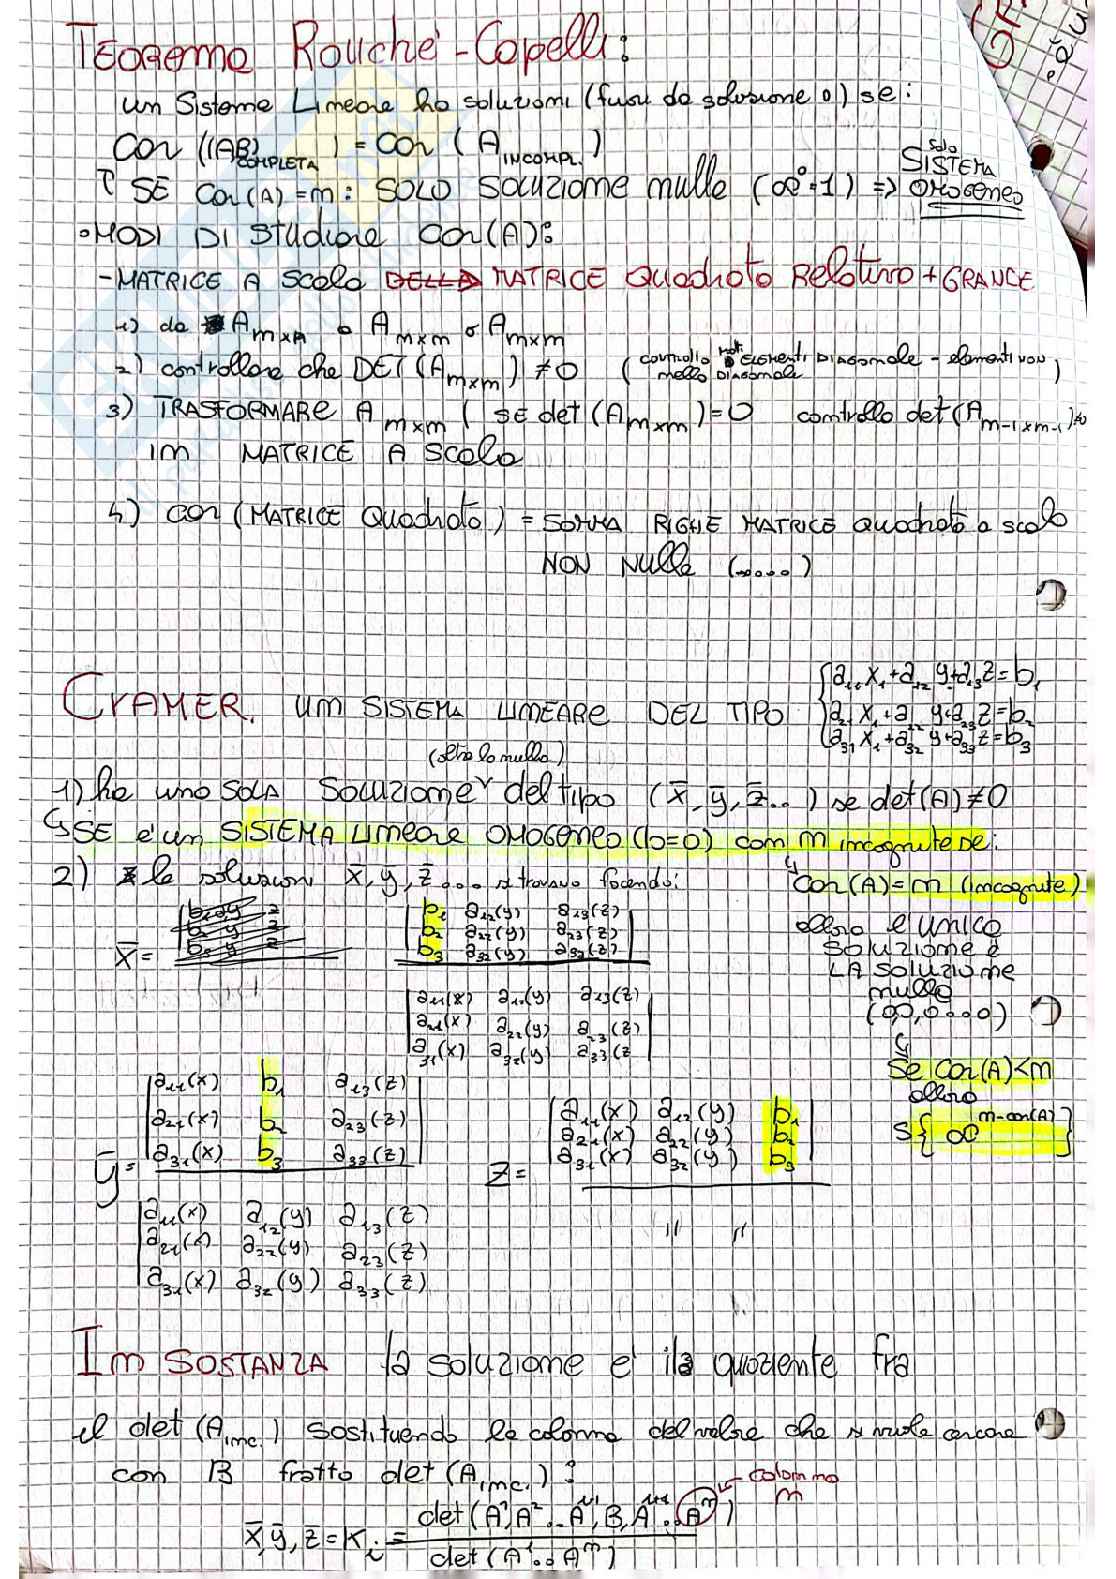 TEOREMA Rouchè-Capelli:
un Sistema Lineare ha soluzioni (fuori da soluzione 0) se:
Car ((AB) COMPLETA) = Car (A INCOMPL.)
SE Car(A) = n: SOLO SOLUZIONE nulla (∞⁰=1) => solo SISTEMA OMOGENEO
•MODI DI Studiare Car(A):
-MATRICE A Scala DELLA MATRICE Quadrata Relativa + GRANDE
1) da A m×n a A m×m o A n×n
2) controllare che DET (A m×m) ≠0 (controllo moti ELEMENTI DIAGONALE - elementi NON nella DIAGONALE)
3) TRASFORMARE A m×m (SE det (A m×m)=0 controllo det (A m-1×m-1)≠0
in MATRICE A Scala
4) car (MATRICE Quadrata) = SOMMA RIGHE MATRICE quadrata a scala
NON Nulle (....)
CRAMER. un SISTEMA LINEARE DEL TIPO
{a₁₁x₁+a₁₂y+a₁₃z=b₁
a₂₁x₁+a₂₂y+a₂₃z=b₂
a₃₁x₁+a₃₂y+a₃₃z=b₃
(oltre la nulla)
1) ha una SOLA Soluzione del tipo (x̄, ȳ, z̄...) se det(A) ≠0
SE è un SISTEMA Lineare OMOGENEO (b=0) con n incognite se:
Car(A)=n (incognite)
allora l'UNICA
SOLUZIONE è
LA SOLUZIONE
nulla
(0,0,0...0)
Se Car(A)<n
allora
S{∞ n-car(A)}
2) le soluzioni x̄, ȳ, z̄... si trovano facendo:
x̄=
b₁ a₁₂(y) a₁₃(z)
b₂ a₂₂(y) a₂₃(z)
b₃ a₃₂(y) a₃₃(z)
a₁₁(x) a₁₂(y) a₁₃(z)
a₂₁(x) a₂₂(y) a₂₃(z)
a₃₁(x) a₃₂(y) a₃₃(z
ȳ=
a₁₁(x) b₁ a₁₃(z)
a₂₁(x) b₂ a₂₃(z)
a₃₁(x) b₃ a₃₃(z)
a₁₁(x) a₁₂(y) a₁₃(z)
a₂₁(x) a₂₂(y) a₂₃(z)
a₃₁(x) a₃₂(y) a₃₃(z)
z=
a₁₁(x) a₁₂(y) b₁
a₂₁(x) a₂₂(y) b₂
a₃₁(x) a₃₂(y) b₃
" "
In SOSTANZA la soluzione è il quoziente fra
il det (A inc.) sostituendo la colonna del valore che si vuole cercare
con B fratto det (A inc.):
x̄, ȳ, z̄ = Kᵢ = det (A¹, A²..Aⁱ⁻¹, B, Aⁱ⁺¹..Aⁿ) ← colonna n
det (A¹..Aⁿ)